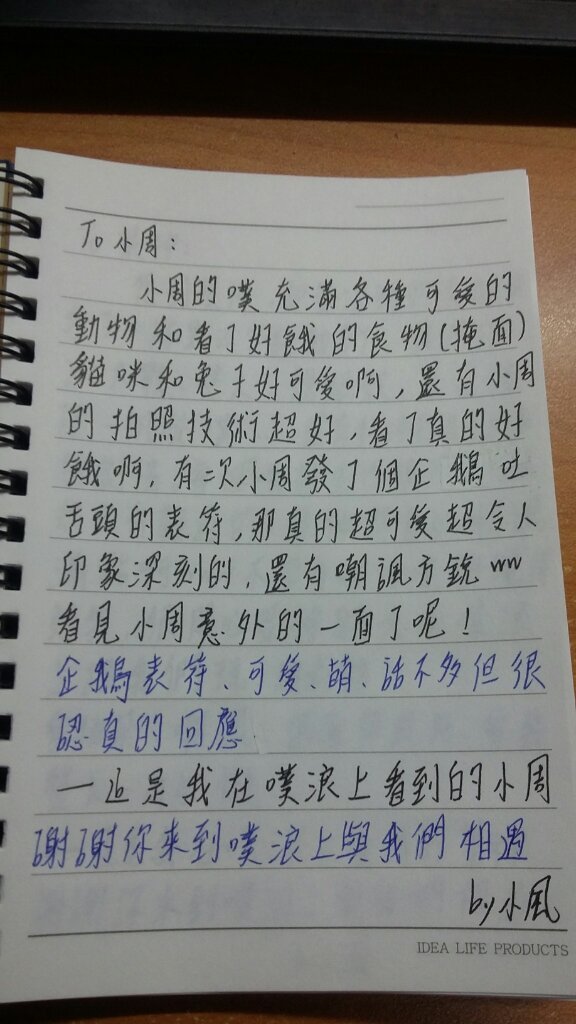 To 小周：
小周的噗充滿各種可愛的
動物和看了好餓的食物(掩面)
貓咪和兔子好可愛啊，還有小周
的拍照技術超好，看了真的好
餓啊，有一次小周發了個企鵝吐
舌頭的表符，那真的超可愛超令人
印象深刻的，還有嘲諷方銳ww
看見小周意外的一面了呢！
企鵝表符、可愛、萌、話不多但很
認真的回應
一這是我在噗浪上看到的小周
謝謝你來到噗浪上與我們相遇
by小風
IDEA LIFE PRODUCTS